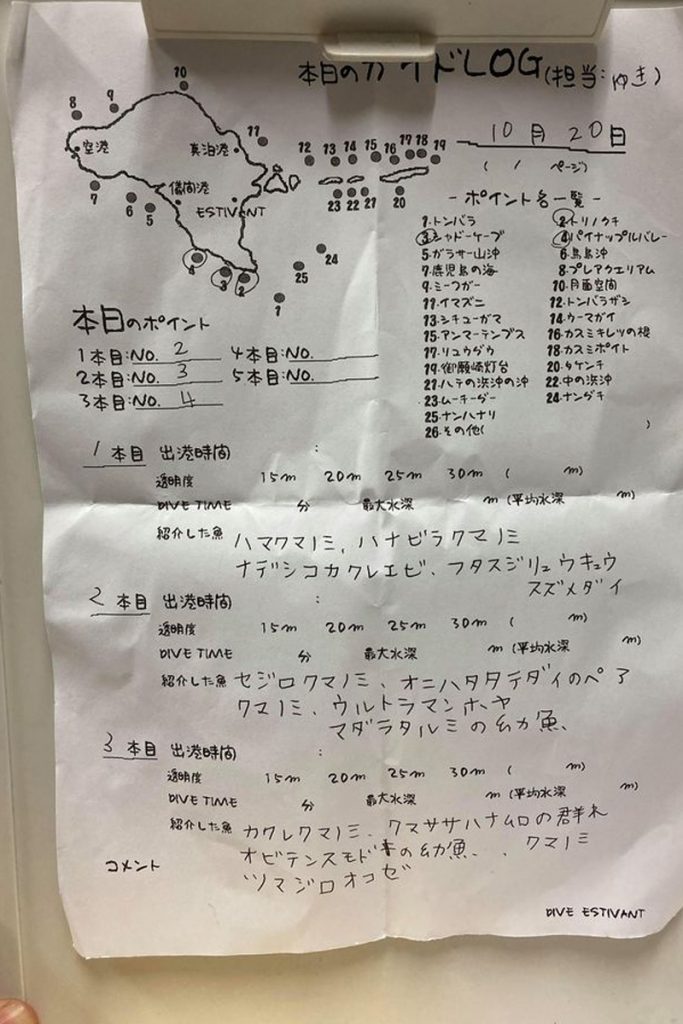 本日のガイドLOG(担当:ゆき)
10月20日
( / ページ)
10
8
9
空港
真泊港
11
12 13 14 15 16 17 18 19
7
6
5
儀間港
ESTIVANT
23 22 21
20
4
3
2
25
24
1
-ポイント名一覧-
1.トンバラ 2.トリノクチ
3.シャドーケーブ 4.パイナップルバレー
5.ガラサー山沖 6.鳥島沖
7.鹿児島の海 8.プレアクエリアム
9.ミーフガー 10.月面空間
11.イマズニ 12.トンバラザシ
13.シチューガマ 14.ウーマガイ
15.アンマーテンプス 16.カスミキレツの根
17.リュウグウ 18.カスミポイント
19.御願崎灯台 20.タケンチ
21.ハテの浜沖の沖 22.中の浜沖
23.ムーチーグー 24.ナングチ
25.ナンハナリ
26.その他( )
本日のポイント
1本目:NO. 2 4本目:NO.
2本目:NO. 3 5本目:NO.
3本目:NO. 4
1本目 出港時間 :
透明度 15m 20m 25m 30m ( m)
DIVE TIME 分 最大水深 m (平均水深 m)
紹介した魚 ハマクマノミ、ハナビラクマノミ
ナデシコカクレエビ、フタスジリュウキュウ
スズメダイ
2本目 出港時間 :
透明度 15m 20m 25m 30m ( m)
DIVE TIME 分 最大水深 m (平均水深 m)
紹介した魚 セジロクマノミ、オニハタタテダイのペア
クマノミ、ウルトラマンホヤ
マダラタルミの幼魚、
3本目 出港時間 :
透明度 15m 20m 25m 30m ( m)
DIVE TIME 分 最大水深 m (平均水深 m)
紹介した魚 カクレクマノミ、クマササハナムロの群れ
オビテンスモドキの幼魚、、クマノミ
ツマジロオコゼ
コメント
DIVE ESTIVANT